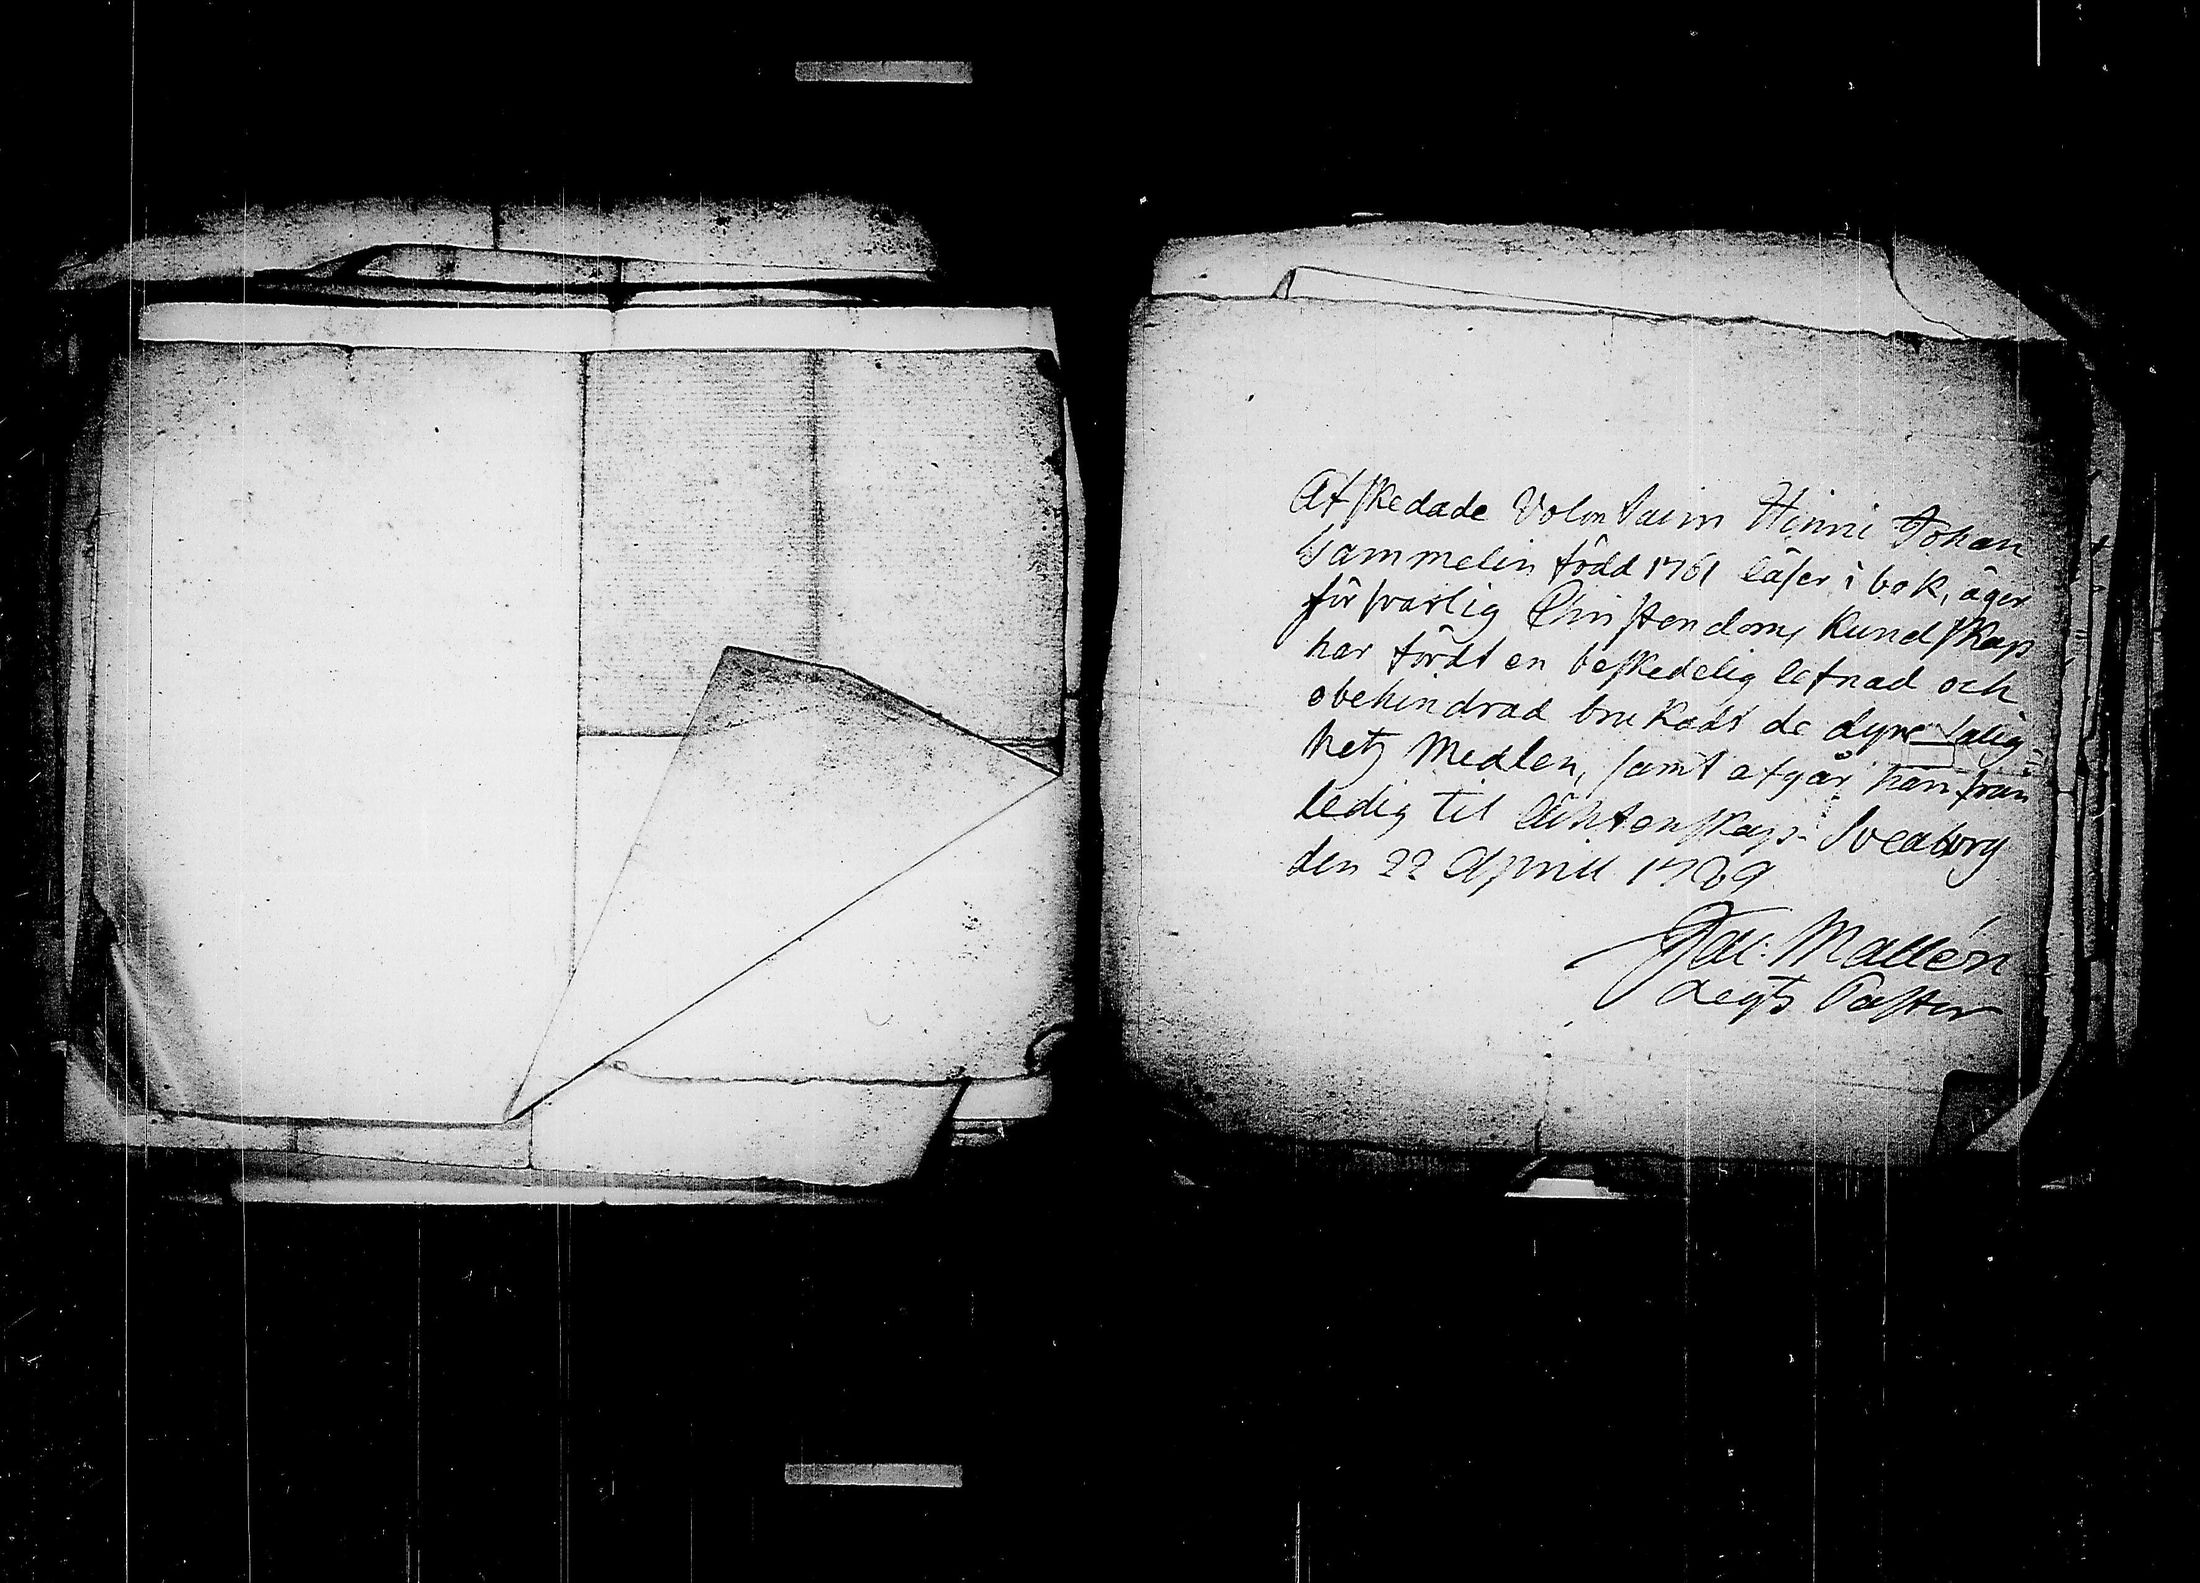 Afskedade Volontairn Hinric Johan
Gammelin född 1761 läser i bok, äger
försvarlig Christendoms kundskap
har fördt en beskedelig lefnad och
obehindrad brukadt de dyre Salig-
hetz Medlen, samt afgår hän från
ledig til ächtenskap. Sveaborg
den 22 Aprill 1789
Jac: Mallén
Regts Pastor